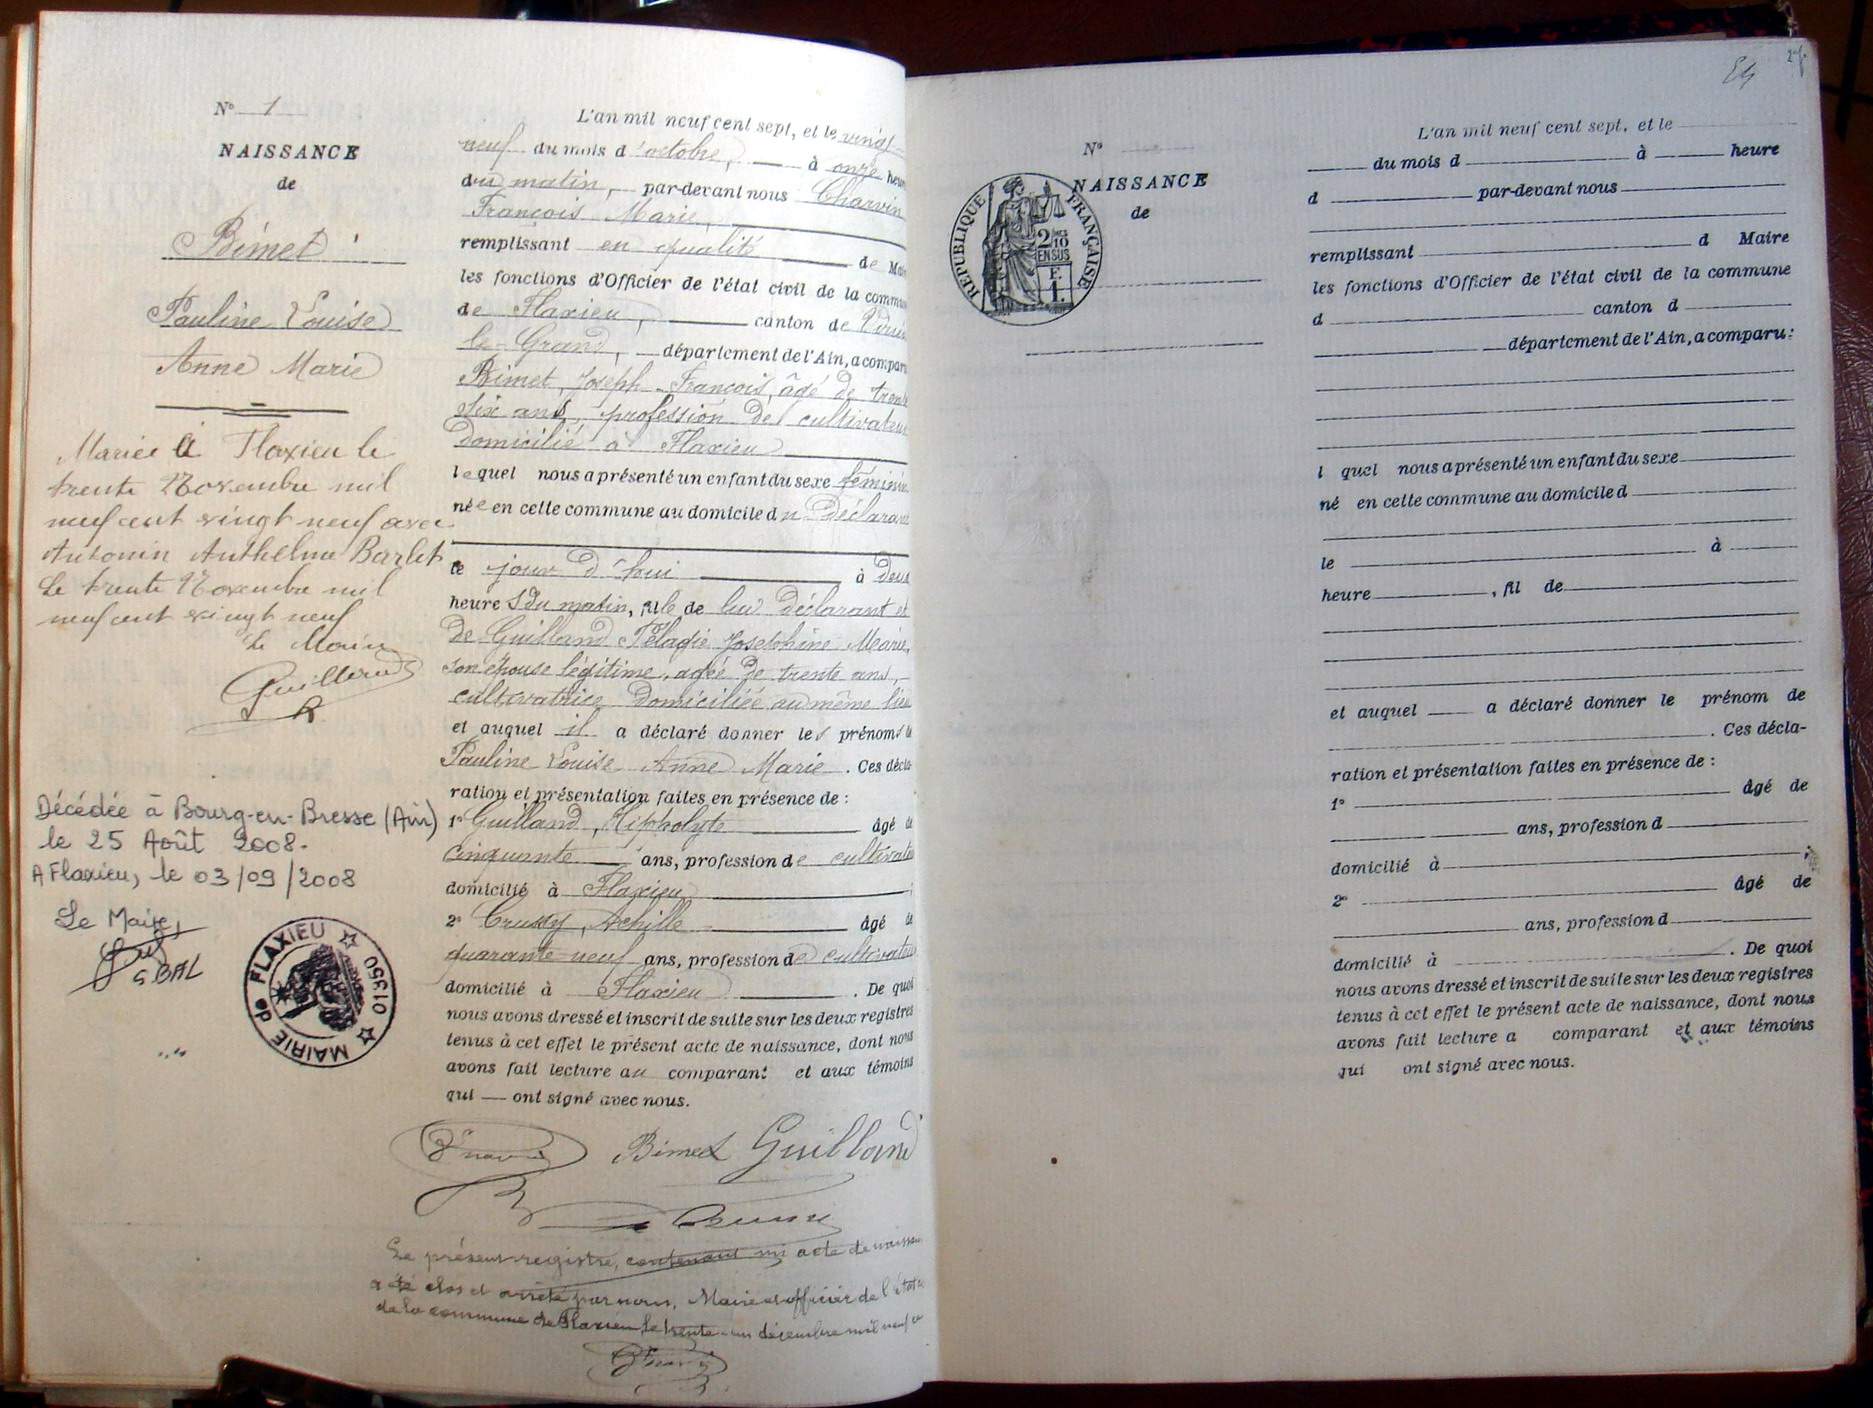 N° 1
NAISSANCE
de
Bimet
Pauline Louise
Anne Marie
Mariée à Flaxieu le
trente Novembre mil
neuf cent vingt neuf avec
Antonin Anthelme Barlet
Le trente Novembre mil
neuf cent vingt neuf
Le Maire
Décédée à Bourg-en-Bresse (Ain)
le 25 Août 2008.
A Flaxieu, le 03/09/2008
Le Maire,
MAIRIE de FLAXIEU 01350
L'an mil neuf cent sept, et le vingt
neuf du mois d'octobre, à onze heur
du matin, par-devant nous Charvin
François Marie
remplissant en qualité de Mai
les fonctions d'Officier de l'état civil de la commu
de Flaxieu, canton de Virieu
le-Grand, département de l'Ain, a comparu
Bimet, Joseph-François, âgé de trente
six ans, profession de cultivateur
domicilié à Flaxieu
lequel nous a présenté un enfant du sexe féminin
née en cette commune au domicile du déclarant
le jour d'hui à deux
heures du matin, fille de lui déclarant et
de Guilland Pélagie Joséphine Marie,
son épouse légitime, agée de trente ans,
cultivatrice domiciliée au même lieu
et auquel il a déclaré donner les prénoms de
Pauline Louise Anne Marie. Ces décla-
ration et présentation faites en présence de :
1° Guilland, Hippolyte âgé de
cinquante ans, profession de cultivate
domicilié à Flaxieu ;
2° Crussy, Achille âgé de
quarante neuf ans, profession de cultivate
domicilié à Flaxieu. De quoi
nous avons dressé et inscrit de suite sur les deux registres
tenus à cet effet le présent acte de naissance, dont nous
avons fait lecture au comparant et aux témoins
qui — ont signé avec nous.
Bimet Guilland
Le présent registre, contenant un acte de naissan
a été clos et arrêté par nous, Maire et officier de l'état
de la commune de Flaxieu, le trente-un décembre mil neuf ce
54
N°
NAISSANCE
de
RÉPUBLIQUE FRANÇAISE
2/10
EN SUS
F.
1.
L'an mil neuf cent sept, et le
du mois d à heure
d par-devant nous
remplissant d Maire
les fonctions d'Officier de l'état civil de la commune
d canton d
département de l'Ain, a comparu :
l quel nous a présenté un enfant du sexe
né en cette commune au domicile d
le à
heure , fil de
et auquel a déclaré donner le prénom de
. Ces décla-
ration et présentation faites en présence de :
1° âgé de
ans, profession d
domicilié à ;
2° âgé de
ans, profession d
domicilié à . De quoi
nous avons dressé et inscrit de suite sur les deux registres
tenus à cet effet le présent acte de naissance, dont nous
avons fait lecture a comparant et aux témoins
qui ont signé avec nous.